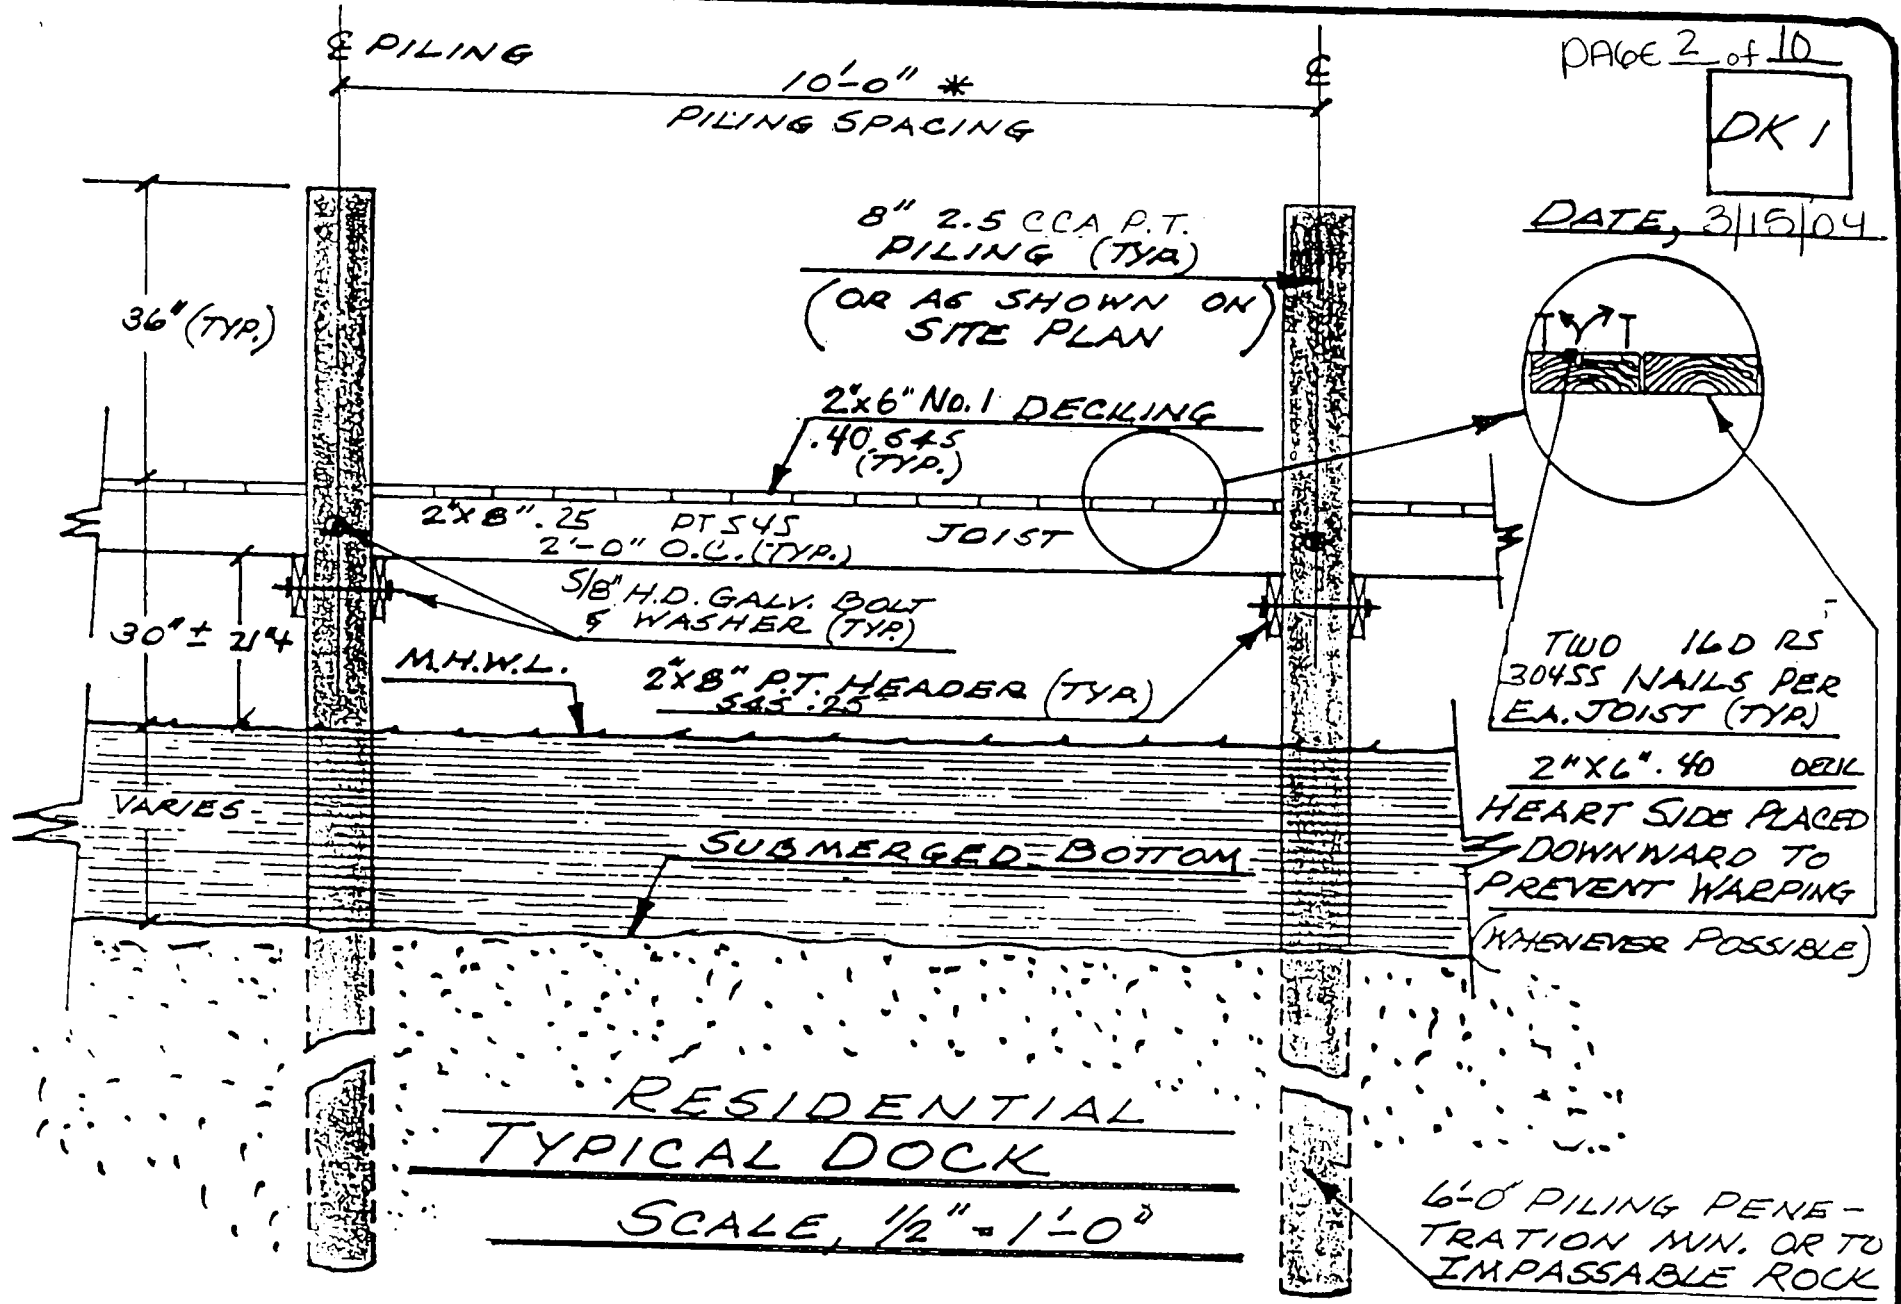 PAGE 2 of 10
DK 1
DATE, 3/15/04
℄ PILING
℄
10'-0" *
PILING SPACING
8" 2.5 CCA P.T.
PILING (TYP.)
(OR AS SHOWN ON
SITE PLAN)
36" (TYP.)
2"x6" No.1 DECKING
.40 S4S
(TYP.)
2"X8" .25 PT S4S JOIST
2'-0" O.C. (TYP.)
5/8" H.D. GALV. BOLT
& WASHER (TYP.)
30" ±
M.H.W.L.
2"X8" P.T. HEADER (TYP.)
S4S .25
TWO 16D RS
304SS NAILS PER
EA. JOIST (TYP.)
2"X6" .40 DECK
HEART SIDE PLACED
DOWNWARD TO
PREVENT WARPING
(WHENEVER POSSIBLE)
VARIES
SUBMERGED BOTTOM
RESIDENTIAL
TYPICAL DOCK
SCALE, 1/2" = 1'-0"
6'-0 PILING PENE-
TRATION MIN. OR TO
IMPASSABLE ROCK